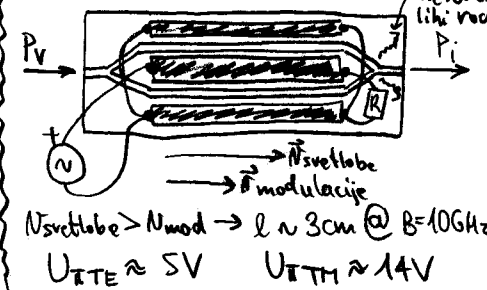 lihi rod
Pv
Pi
R
+
~
v⃗svetlobe
v⃗modulacije
Nsvetlobe > Nmod → l ~ 3cm @ B=10GHz
UπTE ≈ 5V UπTM ≈ 14V